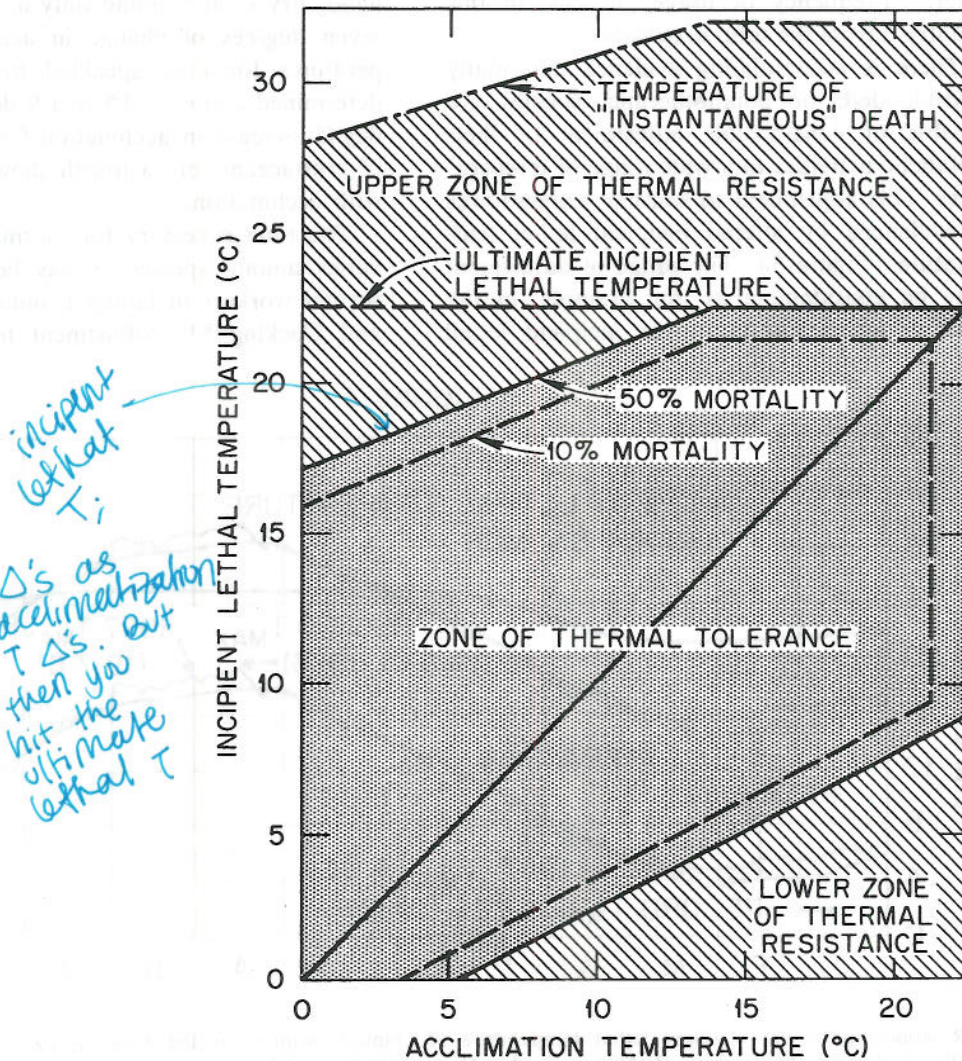 30
TEMPERATURE OF
"INSTANTANEOUS" DEATH
UPPER ZONE OF THERMAL RESISTANCE
25
ULTIMATE INCIPIENT
LETHAL TEMPERATURE
20
50% MORTALITY
10% MORTALITY
15
ZONE OF THERMAL TOLERANCE
10
5
LOWER ZONE
OF THERMAL
RESISTANCE
0
0 5 10 15 20
ACCLIMATION TEMPERATURE (°C)
INCIPIENT LETHAL TEMPERATURE (°C)
incipent
lethal
T;
Δ's as
acclimatization
T Δ's. But
then you
hit the
ultimate
lethal T